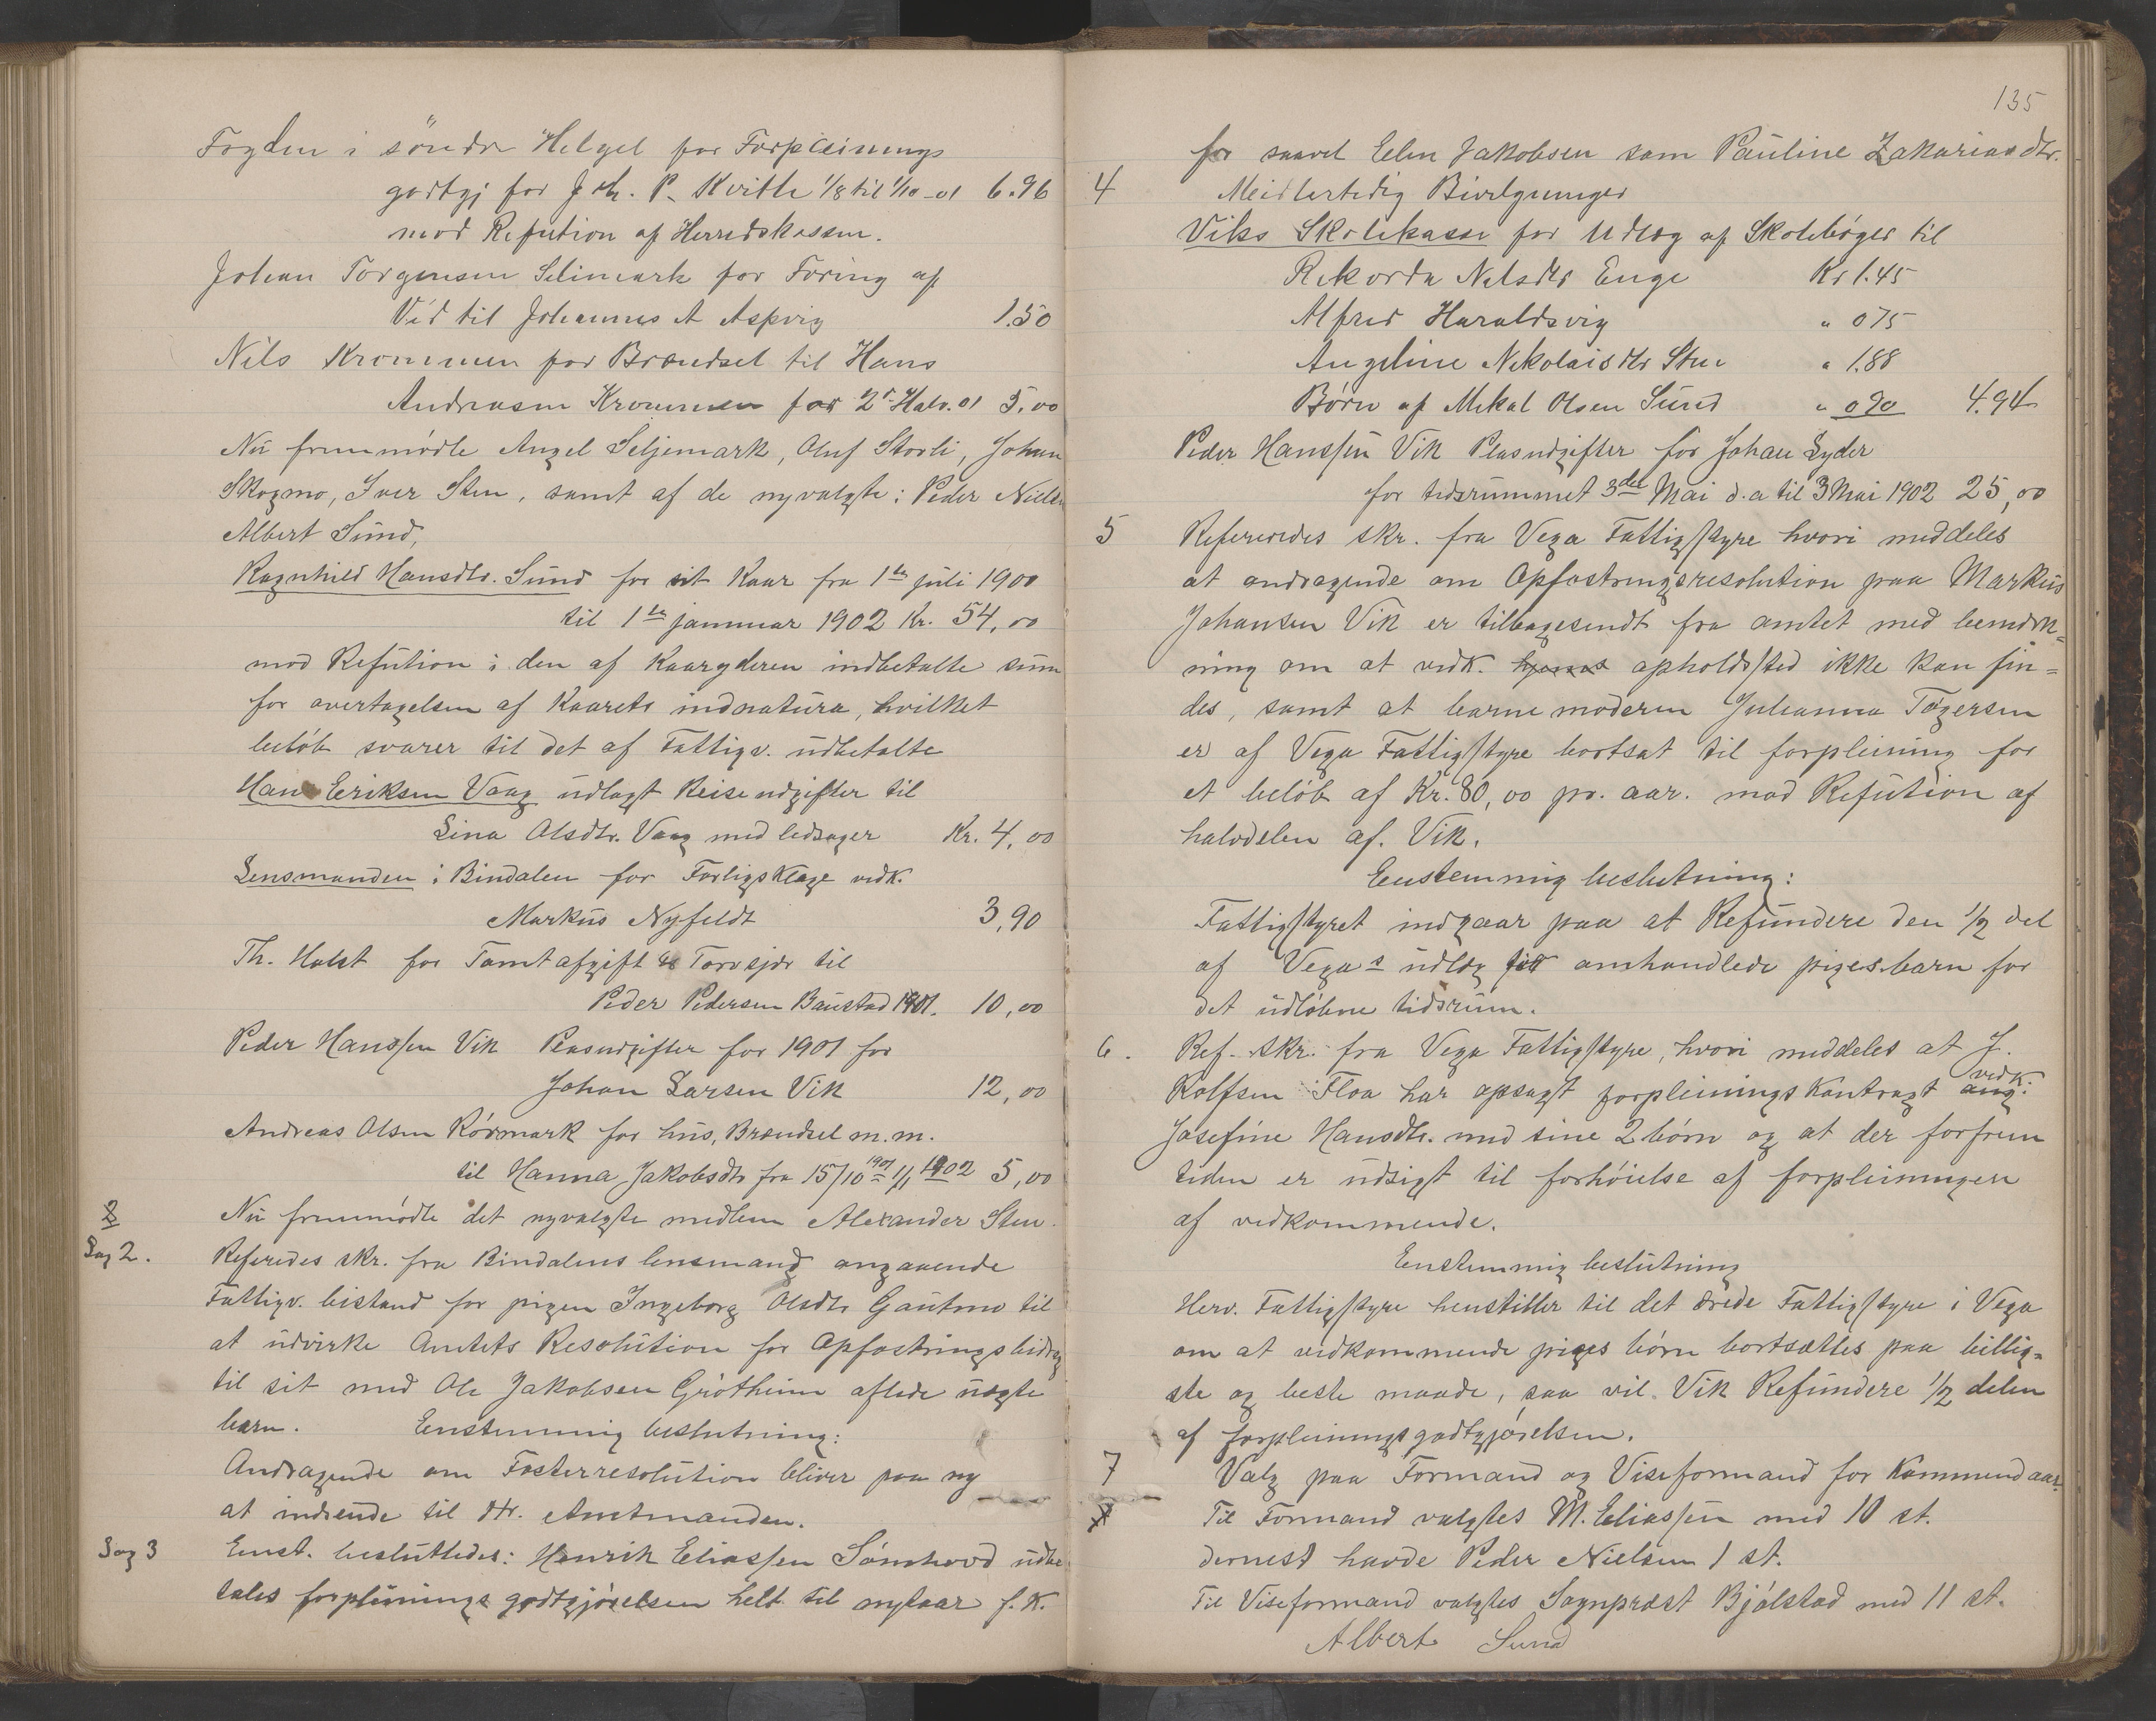 Fogden i söndr Helgel for Forpleinings
godtgj for Joh. P. Kvitle 1/8 til 1/10 - 01 6.96
mod Refution af Herredskassen.
Johan Torgersen Selimark for Föring af
Ved til Johannes A Aspvig 1.50
Nils Krommen for Brændsel til Hans
Andreasen Krommen for 2d Halv. 01 5,00
Nu fremmödte Angel Seljemark, Oluf Storli, Johan
Skogmo, Iver Sten, samt af de nyvalgte: Peder Nielsen
Albert Sund,
Ragnhild Hansdtr. Sund for sit Kaar fra 1ste juli 1900
til 1ste januar 1902 Kr. 54,00
mod Refution i den af Kaaryderen indbetalte sum
for overtagelsen af Kaarets indnatura, hvilket
belöb svarer til det af Fattigv. udbetalte
Hans Eriksen Vaag udlagt Reiseudgifter til
Lina Olsdtr. Vaag med ledsager Kr. 4,00
Lensmanden i Bindalen for Forligsklage vedk.
Markus Nyfeldt 3,90
Th. Holst for Tomtafgift & Torvsjær til
Peder Pedersen Baustad 1901. 10,00
Peder Hanssen Vik Pleasudgifter for 1901 for
Johan Larsen Vik 12,00
Andreas Olsen Rörmark for hus, Brændsel m.m.
til Hanna Jakobsdtr fra 15/10 1901 1/1 1902 5,00
2 Nu fremmödte det nyvalgte medlem Alexander Sten.
Sag 2. Refereredes skr. fra Bindalens lensmand angaaende
Fattigv. bistand for pigen Ingeborg Olsdtr Gautmo til
at udvirke Amtets Resolution for Opfostringsbidrag
til sit med Ole Jakobsen Grötheim aflede uægte
barn. Enstemmig beslutning:
Andragende om Fosterresolution bliver paa ny
at indsende til Hr. Amtmanden.
Sag 3 Enst. besluttedes: Henrik Eliassen Sömhovd udbe
tales forpleinings godtgjörelsen helt til nytaar f. K.
135
for saavel Elen Jakobsen som Pauline Zakariasdtr.
4 Meidlertedig Bivelgninger
Viks Skolekasse for Udlæg af Skolebøger til
Rekorda Nilsdtr Enge Kr 1.45
Alfred Haraldsvig " 0 75
Angeline Nekolaisdtr Sten " 1.88
Børn af Mekal Olsen Sund " 0 90 4.94
Peder Hanssen Vik Pleasudgifter for Johan Lyder
for tidsrummet 3die Mai d.a til 3 Mai 1902 25,00
5 Refereredes skr. fra Vega Fattigstyre hvori meddeles
at andragende om Opfostringsresolution paa Markus
Johansen Vik er tilbagesendt fra amtet med bemærk=
ning om at vedk. hjems opholdssted ikke kan fin=
des, samt at barnemoderen Julianna Tøgersen
er af Vega Fattigstyre bortsat til forpleining for
et belöb af Kr. 80,00 pr. aar. mod Refution af
halvdelen af. Vik.
Enstemmig beslutning:
Fattigstyret indgaar paa at Refundere den 1/2 del
af Vegas udlæg for omhandlede piges barn for
det udlöbne tidsrum.
6. Ref. skr. fra Vega Fattigstyre, hvori meddeles at J.
Rolfsen Floa har opsagt forpleiningskontragt ang. vedk.
Josefine Hansdtr. med sine 2 börn og at der for frem
tiden er udsigt til forhöielse af forpleiningen
af vedkommende.
Enstemmig beslutning
Herv. Fattigstyre henstiller til det ærede Fattigstyre i Vega
om at vedkommende piges börn bortsættes paa billig=
ste og beste maade, saa vil Vik Refundere 1/2 delen
af forpleiningsgodtgjörelsen.
7 Valg paa Formand og Viseformand for Kommend aar.
Til Formand valgtes M. Eliassen med 10 st.
dernest havde Peder Nielsen 1 st.
Til Viseformand valgtes Sognprest Bjölstad med 11 st.
Albert Sund